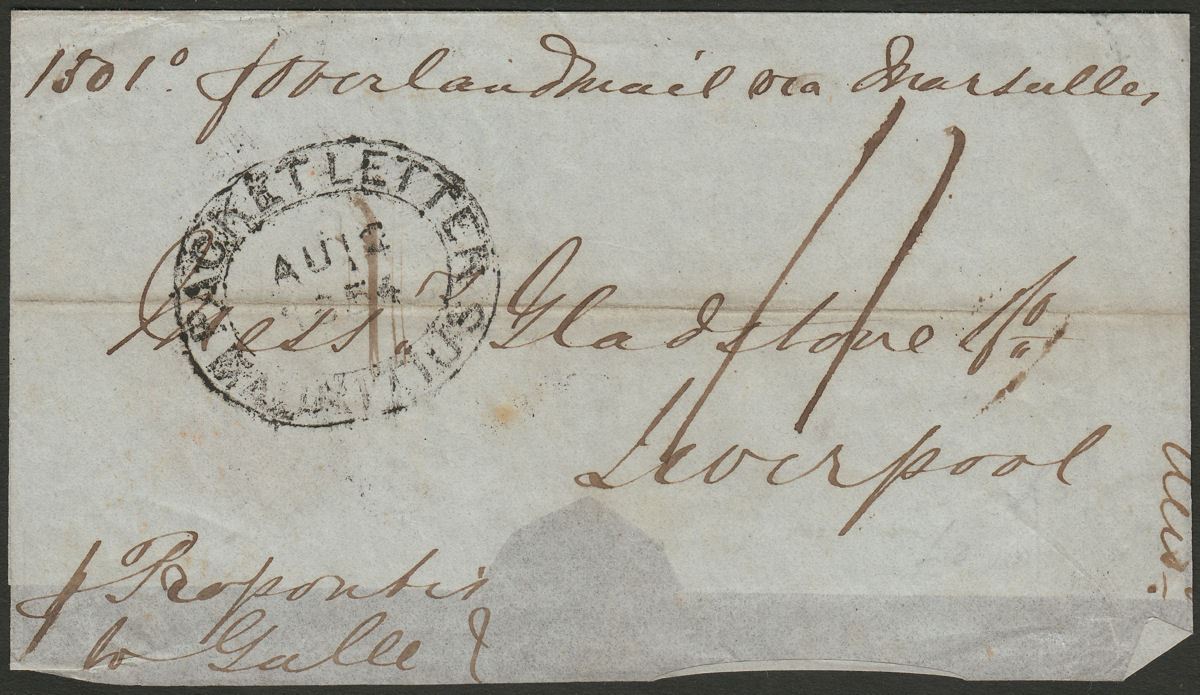 1501° p Overland mail via Marseilles
PACKET LETTER
AU 12
1854
MAURITIUS
Mess.rs Gladstone & Co.
Liverpool
p Propontis
to Galle &